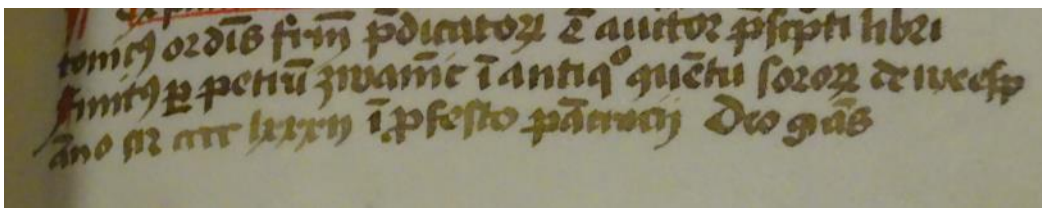 tonicꝰ ordīs fr̄m p̄dicatoꝝ ē auctor p̄sc̄pti libri
finitꝰ ꝑ petrū zwam̄e ī antiqͦ ꝯuētu soroꝝ de weesp
āno m cccc lxxxij ī ꝓfesto pācracij Deo grās